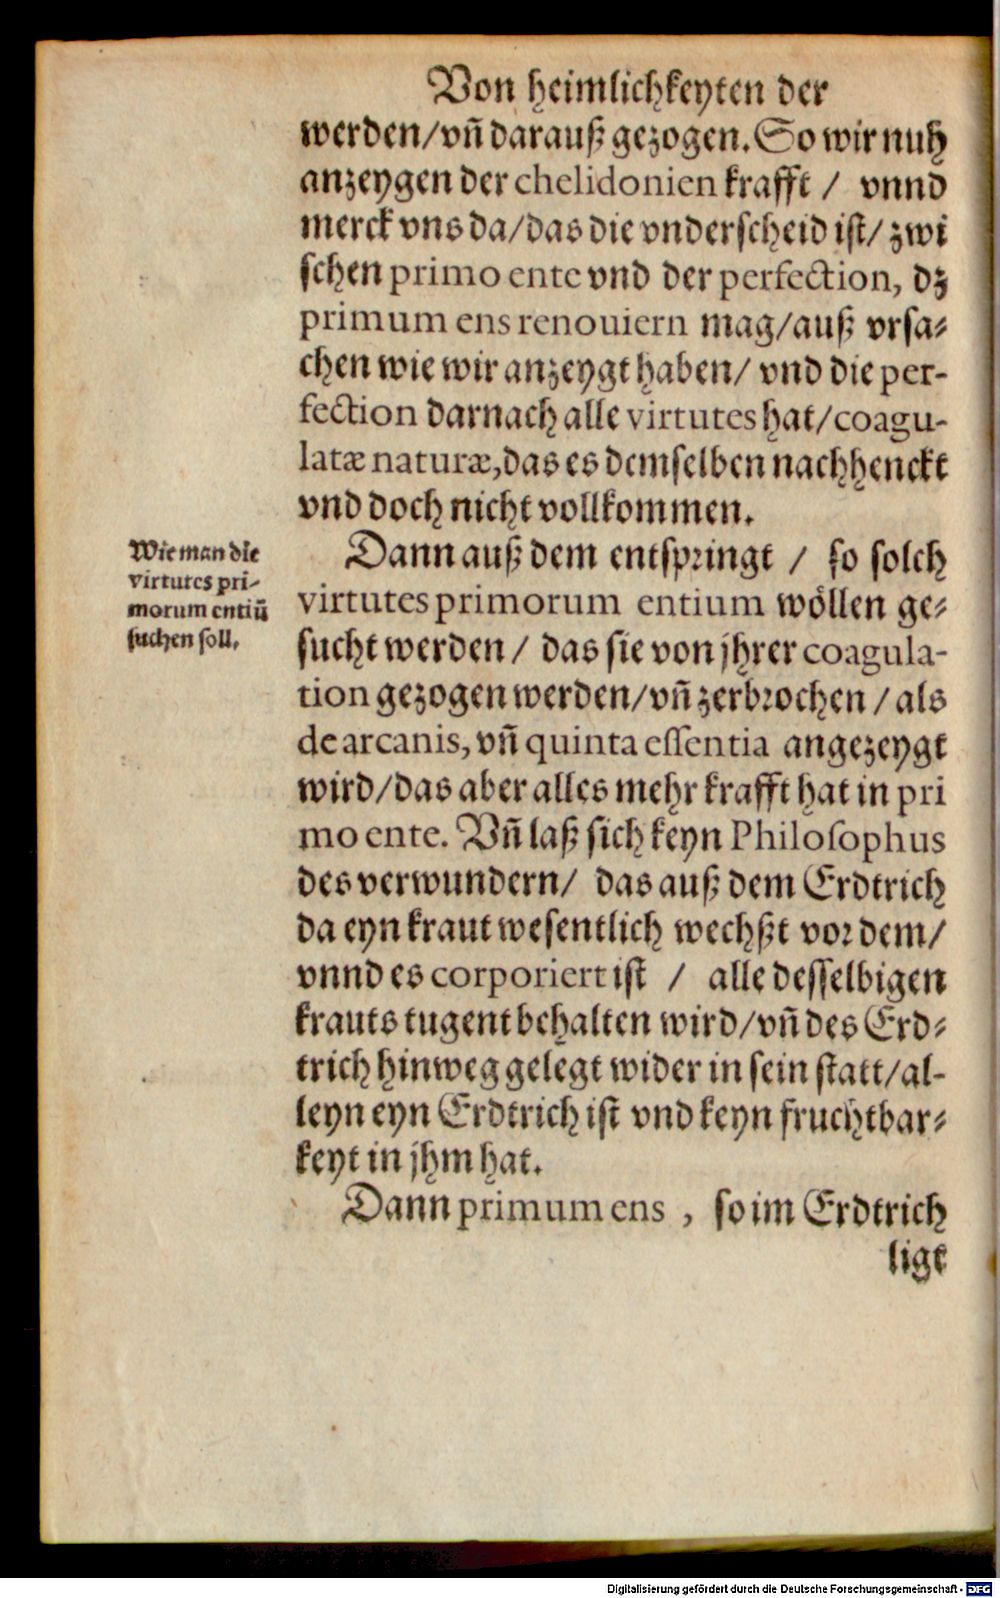 Von heimlichkeyten der
werden/vñ darauß gezogen. So wir nuh
anzeygen der chelidonien krafft / vnnd
merck vns da/das die vnderscheid ist/ zwi
schen primo ente vnd der perfection, dz
primum ens renouiern mag/auß vrsa-
chen wie wir anzeygt haben/ vnd die per-
fection darnach alle virtutes hat/coagu-
latæ naturæ,das es demselben nachhenckt
vnd doch nicht vollkommen.
Wie man die
virtutes pri-
morum entiũ
suchen soll.
Dann auß dem entspringt / so solch
virtutes primorum entium wöllen ge-
sucht werden / das sie von jhrer coagula-
tion gezogen werden/vñ zerbrochen / als
de arcanis, vñ quinta essentia angezeygt
wird/das aber alles mehr krafft hat in pri
mo ente. Vñ laß sich keyn Philosophus
des verwundern/ das auß dem Erdtrich
da eyn kraut wesentlich wechßt vor dem/
vnnd es corporiert ist / alle desselbigen
krauts tugent behalten wird/vñ des Erd-
trich hinweg gelegt wider in sein statt/al-
leyn eyn Erdtrich ist vnd keyn fruchtbar-
keyt in jhm hat.
Dann primum ens , so im Erdtrich
ligt
Digitalisierung gefördert durch die Deutsche Forschungsgemeinschaft - DFG